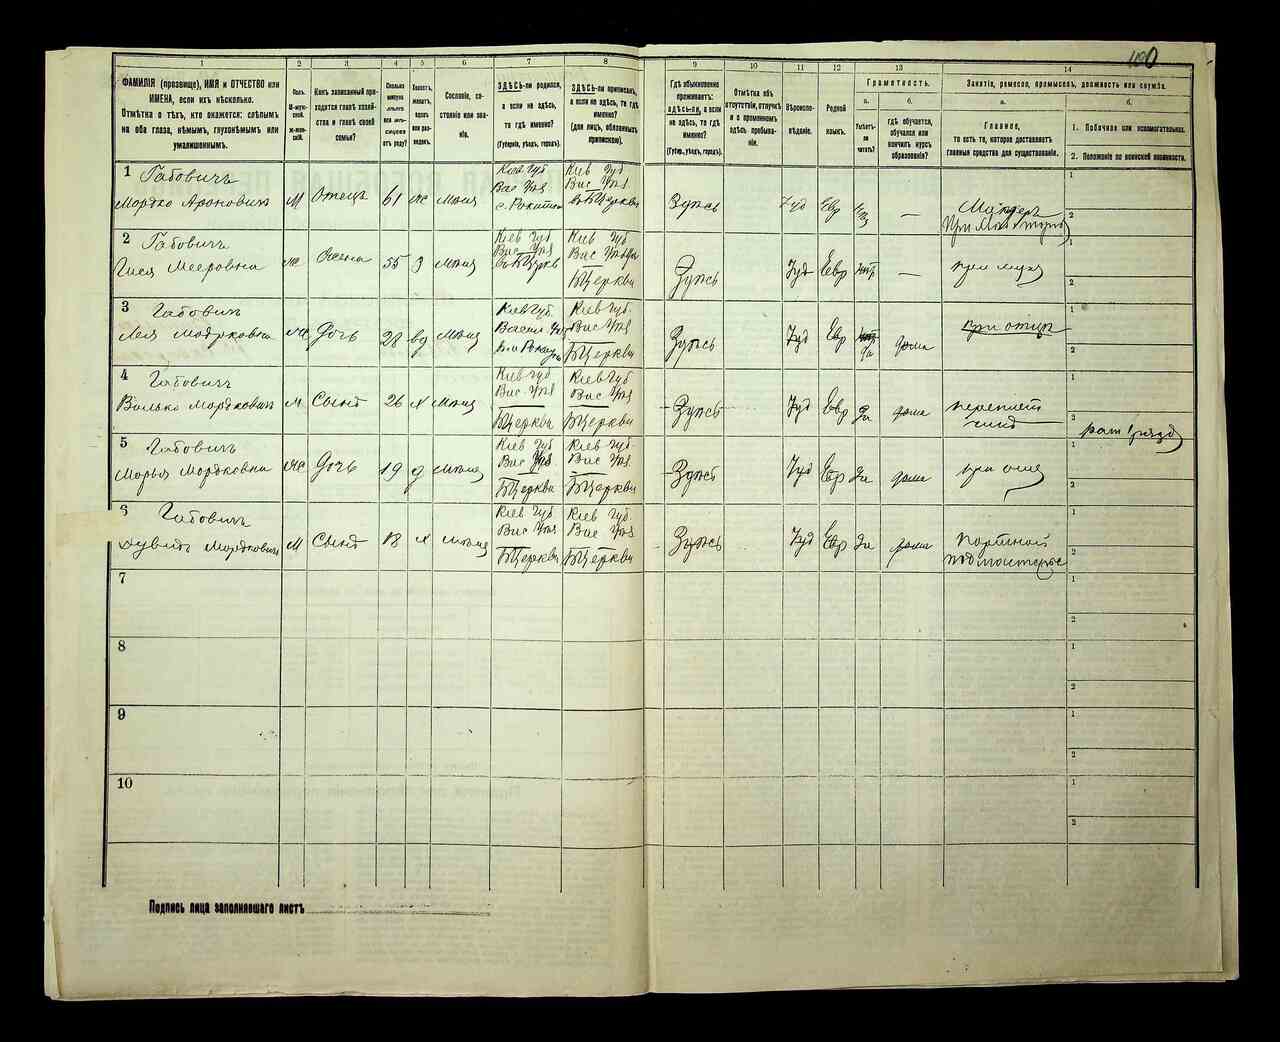 100
1
2
3
4
5
6
7
8
9
10
11
12
13
14
ФАМИЛІЯ (прозвище), ИМЯ и ОТЧЕСТВО или
ИМЕНА, если ихъ нѣсколько.
Отмѣтка о тѣхъ, кто окажется: слѣпымъ
на оба глаза, нѣмымъ, глухонѣмымъ или
умалишеннымъ.
Полъ.
М-муж-
ской.
Ж-жен-
скій.
Какъ записанный при-
ходится главѣ хозяй-
ства и главѣ своей
семьи?
Сколько
минуло
лѣтъ
или мѣ-
сяцевъ
отъ роду?
Холостъ,
женатъ,
вдовъ
или раз-
веденъ.
Сословіе, со-
стояніе или зва-
ніе.
ЗДѢСЬ-ли родился,
а если не здѣсь,
то гдѣ именно?
(Губернія, уѣздъ, городъ).
ЗДѢСЬ-ли приписанъ,
а если не здѣсь, то гдѣ
именно?
(для лицъ, обязанныхъ
припискою).
Гдѣ обыкновенно
проживаетъ:
здѣсь-ли, а если
не здѣсь, то гдѣ
именно?
(Губер., уѣздъ, городъ).
Отмѣтка объ
отсутствіи, отлучкѣ
и о временномъ
здѣсь пребыва-
ніи.
Вѣроиспо-
вѣданіе.
Родной
языкъ.
Грамотность.
а.
Умѣетъ-
ли
читать?
б.
гдѣ обучается,
обучался или
кончилъ курсъ
образованія?
Занятіе, ремесло, промыселъ, должность или служба.
а.
Главное,
то есть то, которое доставляетъ
главныя средства для существованія.
б.
1. Побочное или вспомогательное.
2. Положеніе по воинской повинности.
1
Габовичъ
Мордко Ароновичъ
М
Отецъ
61
ж
Мѣщ
Кіев Губ
Вас Уѣз
с. Рокитно
Кіев Губ
Вас Уѣз
БЦеркви
Здѣсь
Іуд
Евр
—
1
2
2
Габовичъ
Гися Мееровна
ж
Жена
55
З
Мѣщ
Кіев Губ
Вас Уѣз
БЦеркв
Кіев Губ
Вас Уѣзда
БЦеркви
Здѣсь
Іуд
Евр
нѣт
—
при мужѣ
1
2
3
Габовичъ
Лея Мордковна
ж
Дочь
28
вд
Мѣщ
Кіев Губ
Васил Уѣз
Кіев Губ
Вас Уѣз
БЦеркви
Здѣсь
Іуд
Евр
нѣт
да
дома
при отцѣ
1
2
4
Габовичъ
Волько Мордковичъ
М
Сынъ
26
Х
Мѣщ
Кіев Губ
Вас Уѣз
БЦеркви
Кіев Губ
Вас Уѣз
БЦеркви
Здѣсь
Іуд
Евр
Да
дома
переплет
чикъ
1
2
рат 1 разр
5
Габовичъ
Марья Мордковна
Ж
Дочь
19
д
Мѣщ
Кіев Губ
Вас Уѣз
БЦеркви
Кіев Губ.
Вас Уѣз
БЦеркви
Здѣсь
Іуд
Евр
Да
дома
при отцѣ
1
2
6
Габовичъ
Дувидъ Мордковичъ
М
Сынъ
18
Х
Мѣщ
Кіев Губ
Вас Уѣз
БЦеркви
Кіев Губ.
Вас Уѣз
БЦеркви
Здѣсь
Іуд
Евр
Да
дома
Портной
подмастерье
1
2
7
1
2
8
1
2
9
1
2
10
1
2
Подпись лица заполнявшаго листъ